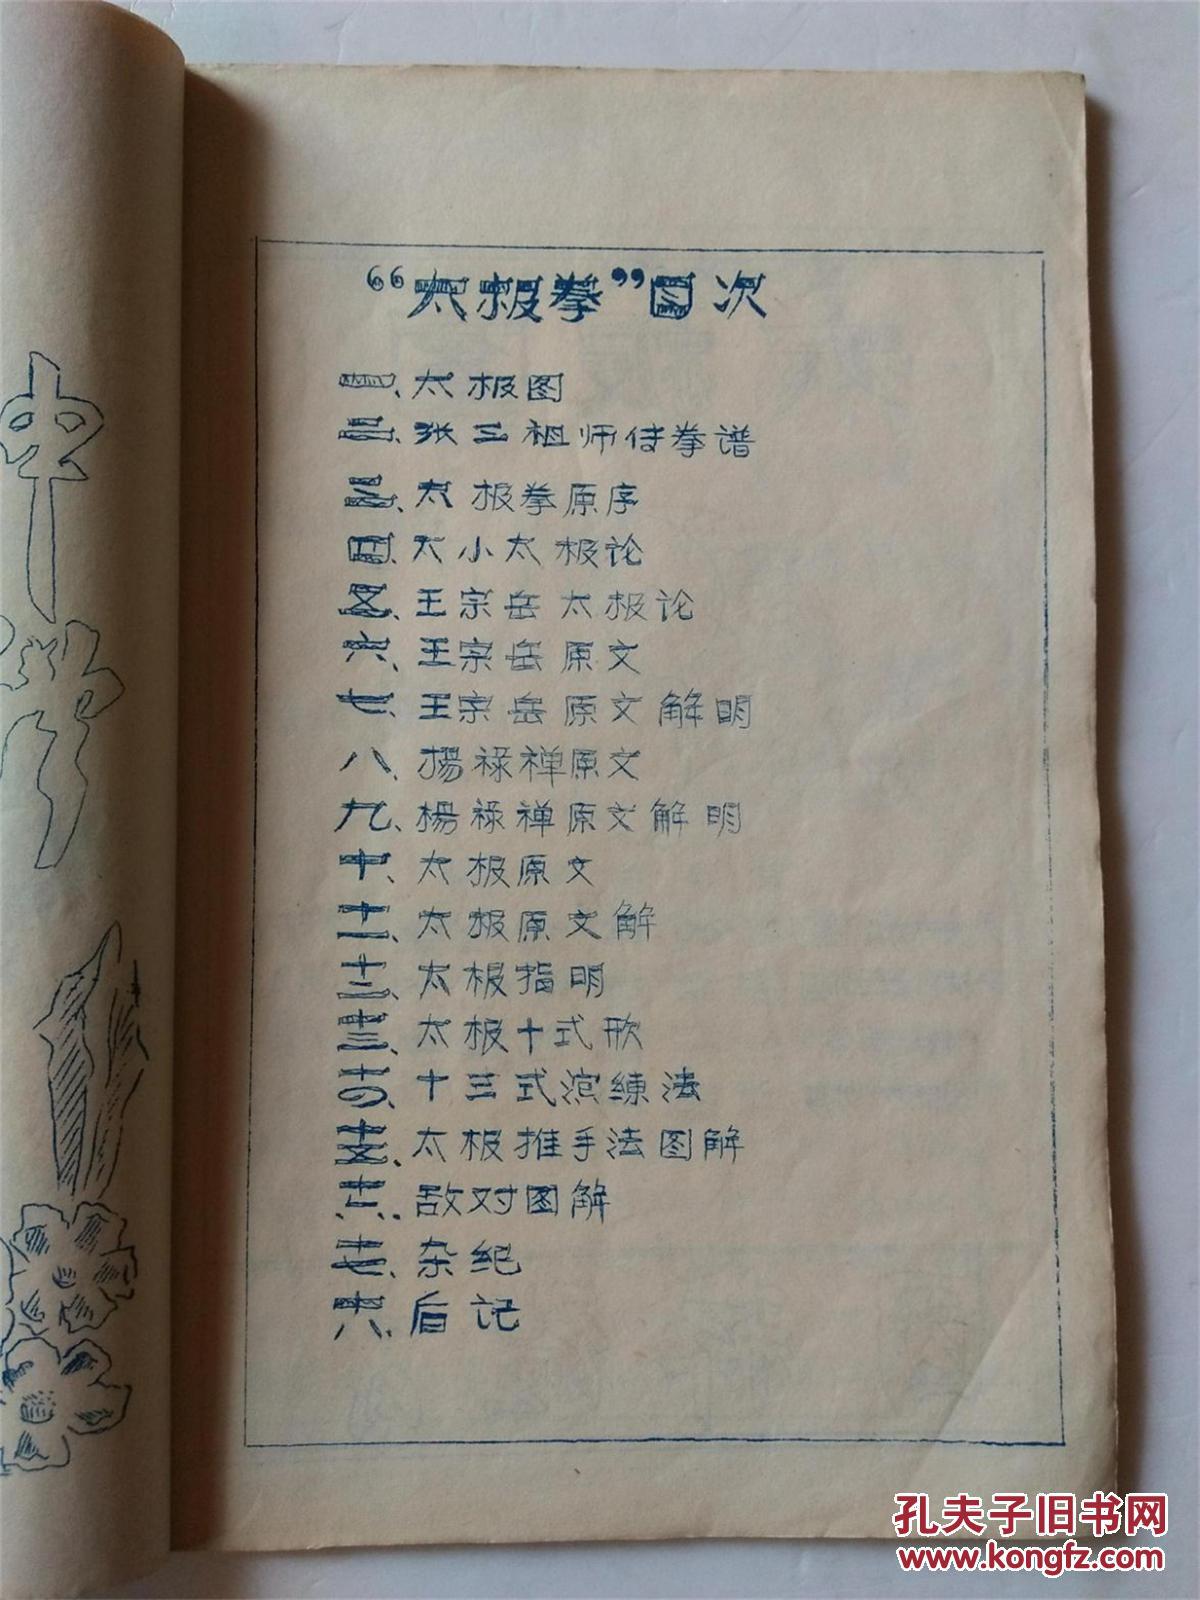 中
“太极拳”目次
一、太极图
二、张三祖师传拳谱
三、太极拳原序
四、大小太极论
五、王宗岳太极论
六、王宗岳原文
七、王宗岳原文解明
八、楊禄禅原文
九、楊禄禅原文解明
十、太极原文
十一、太极原文解
十二、太极指明
十三、太极十式歌
十四、十三式演練法
十五、太极推手法图解
十六、敌对图解
十七、杂纪
十八、后记
孔夫子旧书网
www.kongfz.com